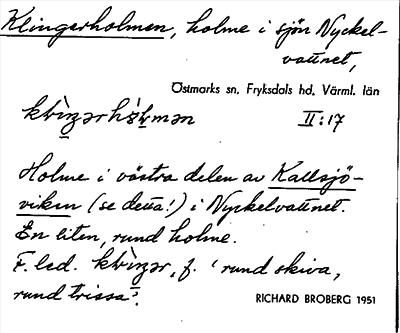 Klingerholmen, holme i sjön Nyckel-
vattnet,
Östmarks sn, Fryksdals hd, Värml. län
II:17
Holme i västra delen av Kallsjö-
viken (se detta!) i Nyckelvattnet.
En liten, rund holme.
F. led. f. 'rund skiva,
rund trissa'.
RICHARD BROBERG 1951